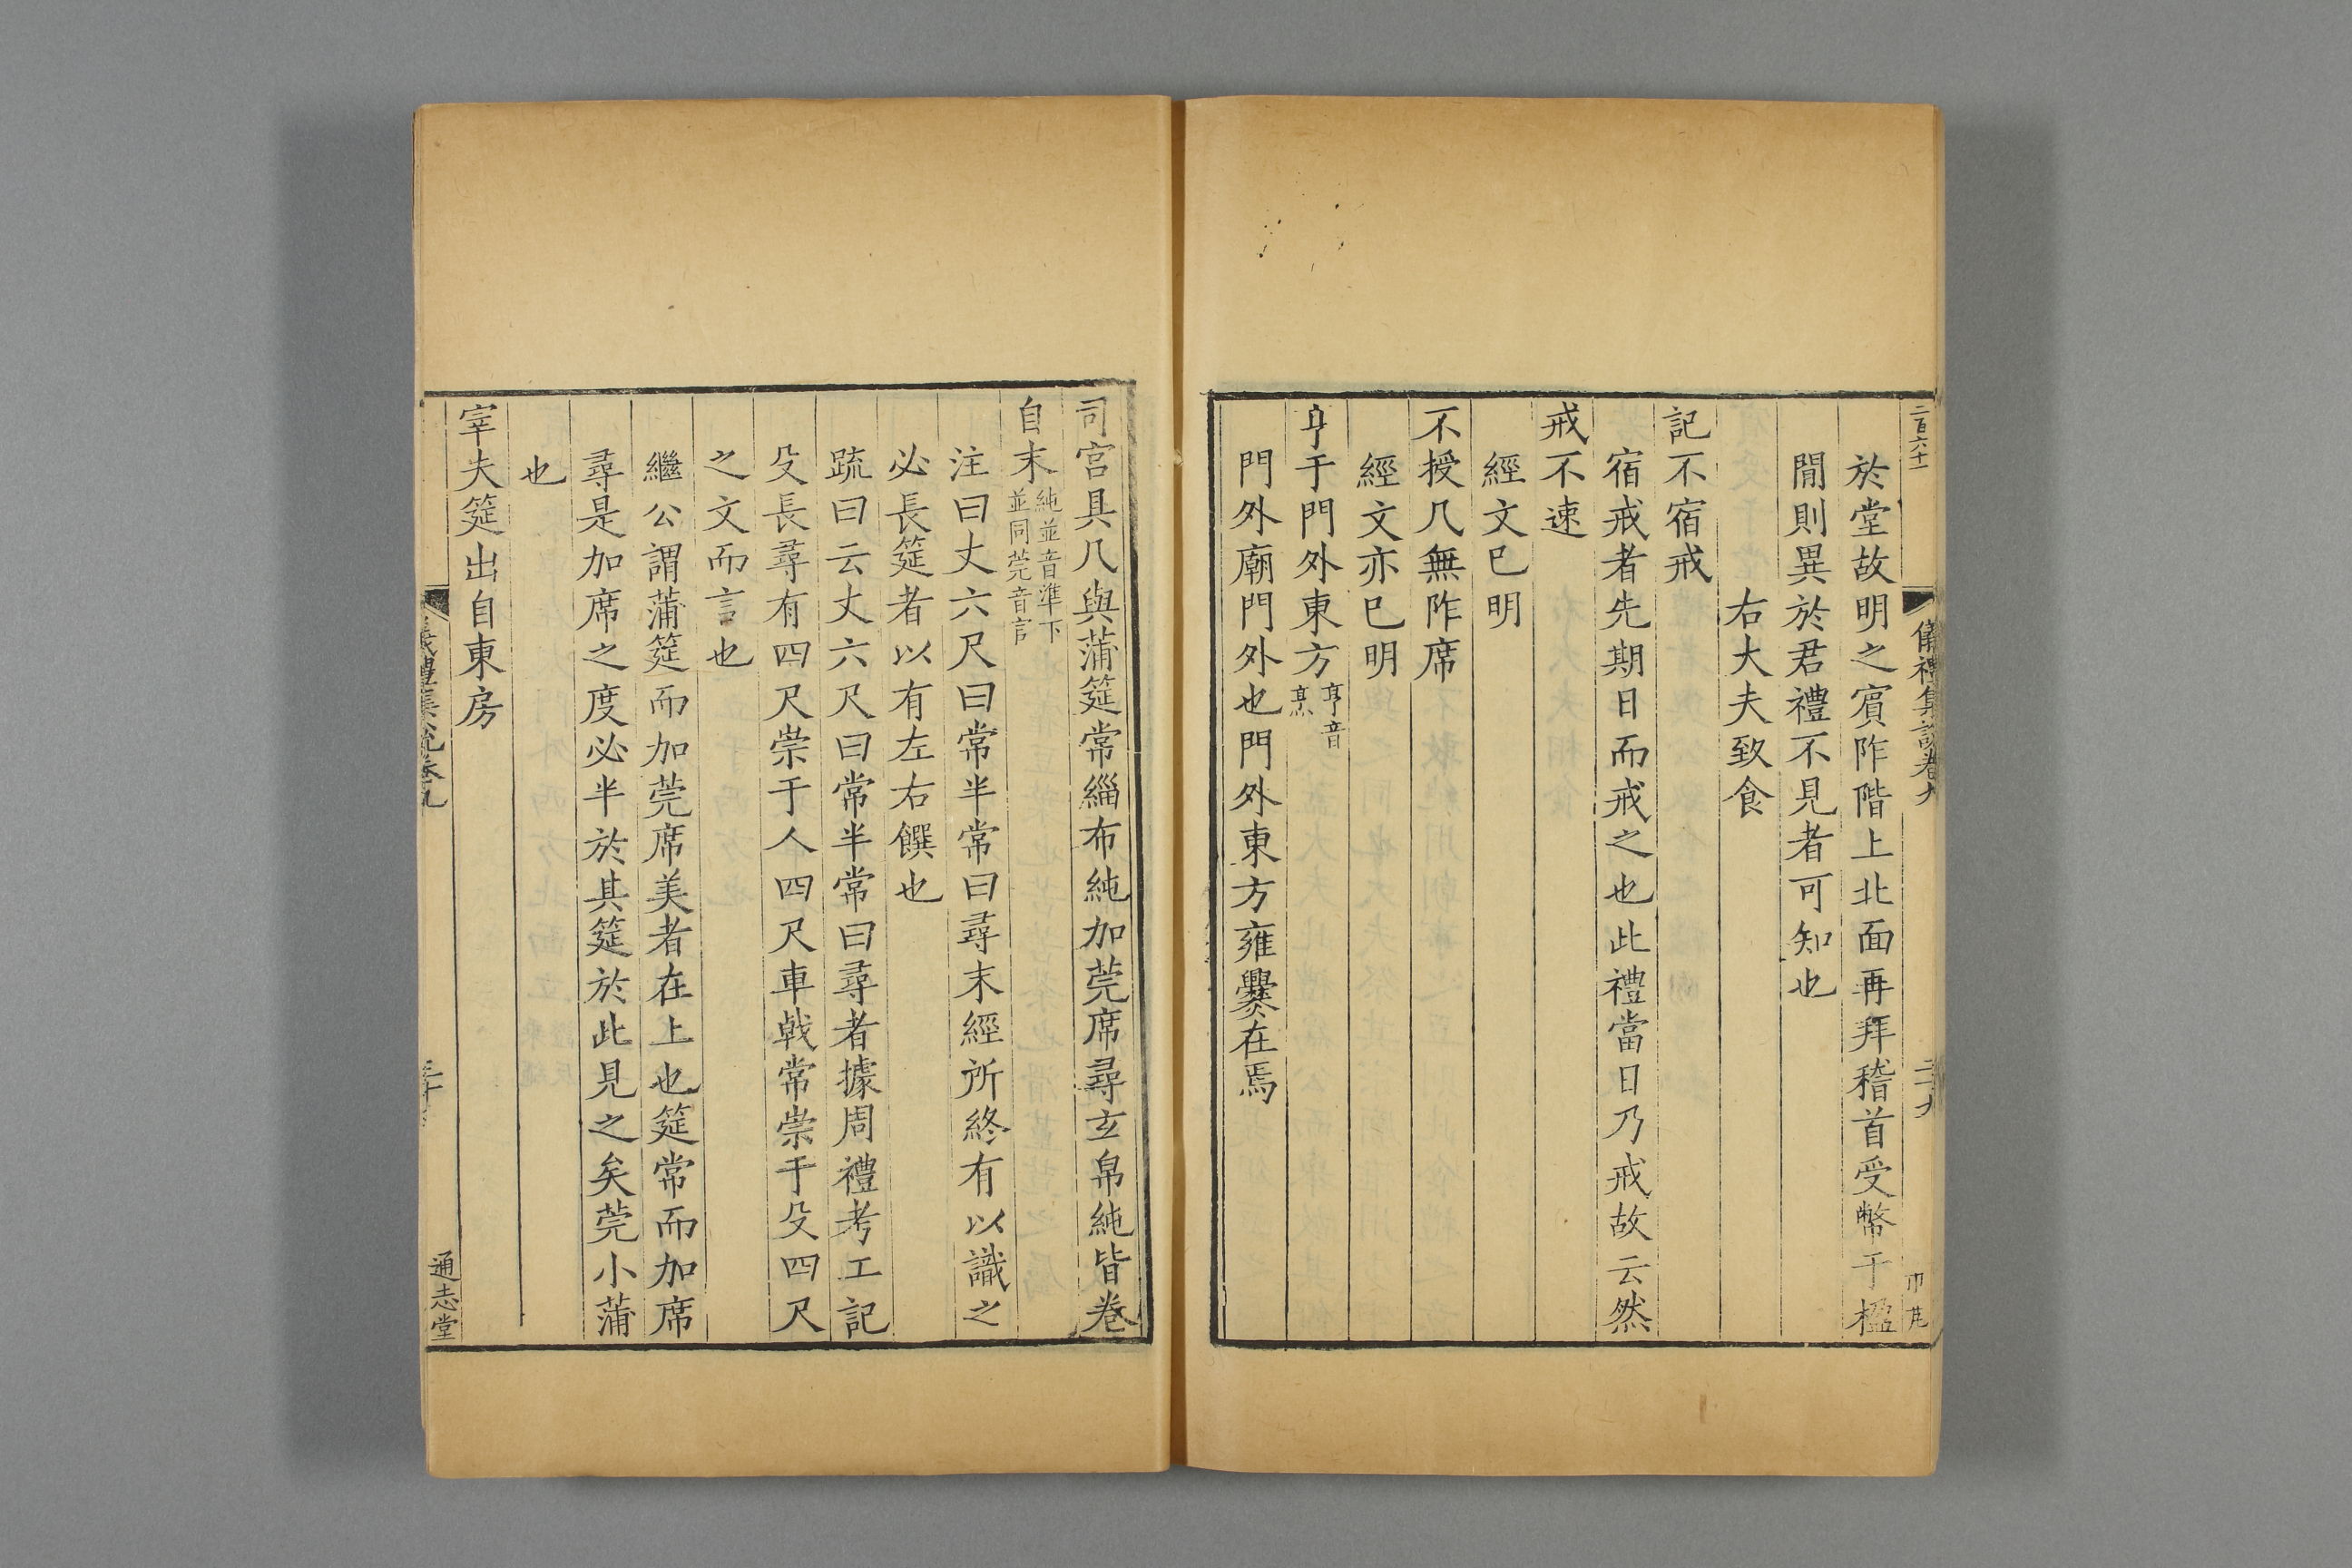 二百六十一
儀禮集說卷九
二十九
於堂故明之賔阼階上北面再拜稽首受幣于楹
閒則異於君禮不見者可知也
右大夫致食
記不宿戒
宿戒者先期日而戒之也此禮當日乃戒故云然
戒不速
經文已明
不授几無阼席
經文亦已明
亨于門外東方亨音烹
門外廟門外也門外東方雍爨在焉
司宮具几與蒲筵常緇布純加莞席尋玄帛純皆卷
自末純並音準下並同莞音官
注曰丈六尺曰常半常曰尋末經所終有以識之
必長筵者以有左右饌也
疏曰云丈六尺曰常半常曰尋者據周禮考工記
殳長尋有四尺崇于人四尺車戟常崇于殳四尺
之文而言也
繼公謂蒲筵而加莞席美者在上也筵常而加席
尋是加席之度必半於其筵於此見之矣莞小蒲
也
宰夫筵出自東房
儀禮集說卷九
通志堂